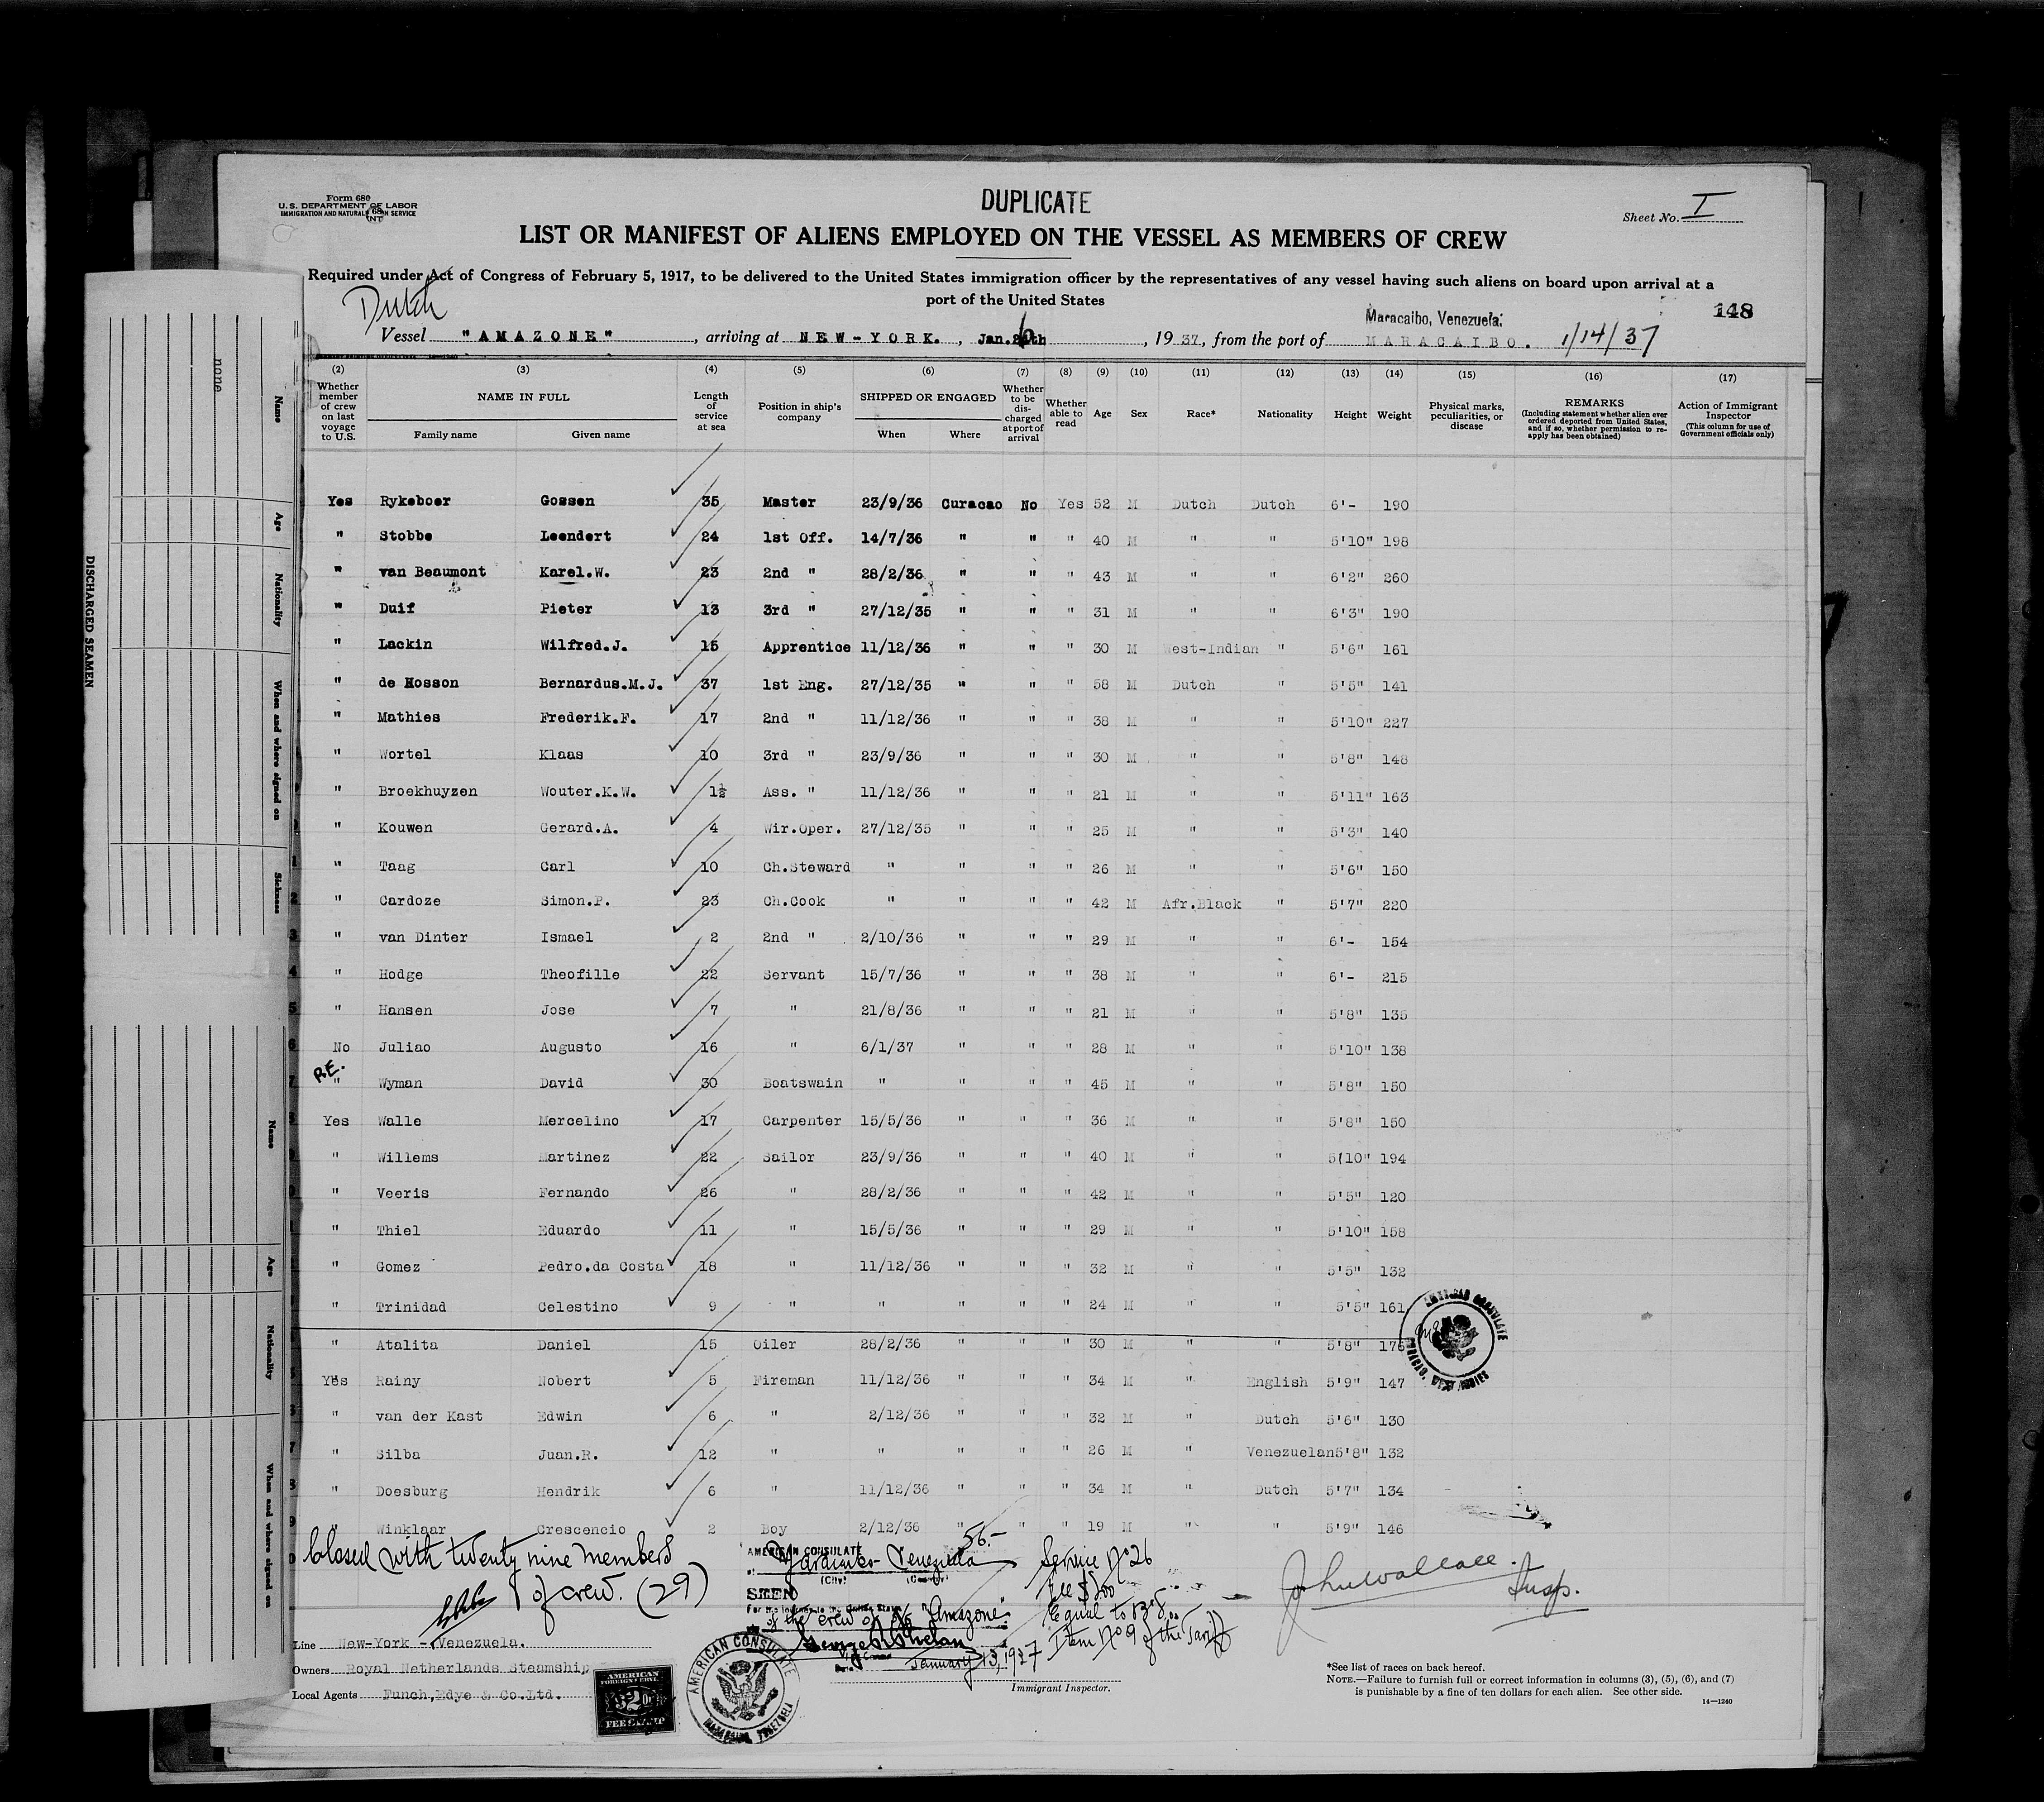 Form 680
U.S. DEPARTMENT OF LABOR
DUPLICATE
Sheet No. I
LIST OR MANIFEST OF ALIENS EMPLOYED ON THE VESSEL AS MEMBERS OF CREW
Required under Act of Congress of February 5, 1917, to be delivered to the United States immigration officer by the representatives of any vessel having such aliens on board upon arrival at a
port of the United States
Dutch
148
Maracaibo, Venezuela.
Vessel "AMAZONE", arriving at NEW-YORK., Jan. , 1937, from the port of MARACAIBO. 1/14/37
(2) (3) (4) (5) (6) (7) (8) (9) (10) (11) (12) (13) (14) (15) (16) (17)
Whether member of crew on last voyage to U.S.
NAME IN FULL
Family name Given name
Length of service at sea
Position in ship's company
SHIPPED OR ENGAGED
When Where
Whether to be discharged at port of arrival
Whether able to read
Age
Sex
Race*
Nationality
Height
Weight
Physical marks, peculiarities, or disease
REMARKS
(Including statement whether alien ever ordered deported from United States, and if so, whether permission to reapply has been obtained)
Action of Immigrant Inspector
(This column for use of Government officials only)
Yes Rykeboer Gossen 35 Master 23/9/36 Curacao No Yes 52 M Dutch Dutch 6'- 190
" Stobbe Leendert 24 1st Off. 14/7/36 " " " 40 M " " 5'10" 198
" van Beaumont Karel.W. 23 2nd " 28/2/36 " " " 43 M " " 6'2" 260
" Duif Pieter 13 3rd " 27/12/35 " " " 31 M " " 6'3" 190
" Lackin Wilfred.J. 15 Apprentice 11/12/36 " " " 30 M West-Indian " 5'6" 161
" de Hosson Bernardus.M.J. 37 1st Eng. 27/12/35 " " " 58 M Dutch " 5'5" 141
" Mathies Frederik.F. 17 2nd " 11/12/36 " " " 38 M " " 5'10" 227
" Wortel Klaas 10 3rd " 23/9/36 " " " 30 M " " 5'8" 148
" Broekhuyzen Wouter.K.W. 1½ Ass. " 11/12/36 " " " 21 M " " 5'11" 163
" Kouwen Gerard.A. 4 Wir.Oper. 27/12/35 " " " 25 M " " 5'3" 140
1 " Taag Carl 10 Ch.Steward " " " " 26 M " " 5'6" 150
2 " Cardoze Simon.P. 23 Ch.Cook " " " " 42 M Afr.Black " 5'7" 220
3 " van Dinter Ismael 2 2nd " 2/10/36 " " " 29 M " " 6'- 154
4 " Hodge Theofille 22 Servant 15/7/36 " " " 38 M " " 6'- 215
5 " Hansen Jose 7 " 21/8/36 " " " 21 M " " 5'8" 135
6 No Juliao Augusto 16 " 6/1/37 " " " 28 M " " 5'10" 138
R.E.
7 " Wyman David 30 Boatswain " " " " 45 M " " 5'8" 150
Yes Walle Mercelino 17 Carpenter 15/5/36 " " " 36 M " " 5'8" 150
" Willems Martinez 22 Sailor 23/9/36 " " " 40 M " " 5(10" 194
" Veeris Fernando 26 " 28/2/36 " " " 42 M " " 5'5" 120
" Thiel Eduardo 11 " 15/5/36 " " " 29 M " " 5'10" 158
" Gomez Pedro.da Costa 18 " 11/12/36 " " " 32 M " " 5'5" 132
" Trinidad Celestino 9 " " " " " 24 M " " 5'5" 161
" Atalita Daniel 15 Oiler 28/2/36 " " " 30 M " " 5'8" 175
Yes Rainy Nobert 5 Fireman 11/12/36 " " " 34 M " English 5'9" 147
" van der Kast Edwin 6 " 2/12/36 " " " 32 M " Dutch 5'6" 130
7 " Silba Juan.R. 12 " " " " " 26 M " Venezuelan 5'8" 132
8 " Doesburg Hendrik 6 " 11/12/36 " " " 34 M " Dutch 5'7" 134
9 " Winklaar Crescencio 2 Boy 2/12/36 " " " 19 M " " 5'9" 146
Closed with twenty nine members
of crew. (29)
56.-
AMERICAN CONSULATE
Maracaibo - Venezuela
(City) (Country)
SEEN
of the crew of "Amazone"
January 13, 1937
Service No 26
Fee $2.00
Equal to
Item No 9 of the Tariff
John Wallace
Insp.
AMERICAN CONSULATE
WEST INDIES
AMERICAN CONSULATE
MARACAIBO, VENEZUELA
Line New-York - Venezuela.
Owners Royal Netherlands Steamship
Local Agents Funch,Edye & Co.Ltd.
AMERICAN
FOREIGN SERVICE
$2
FEE STAMP
Immigrant Inspector.
*See list of races on back hereof.
NOTE.—Failure to furnish full or correct information in columns (3), (5), (6), and (7)
is punishable by a fine of ten dollars for each alien. See other side.
14—1240
DISCHARGED SEAMEN
none
Name
Age
Nationality
When and where signed on
Sickness
Name
Age
Nationality
When and where signed on